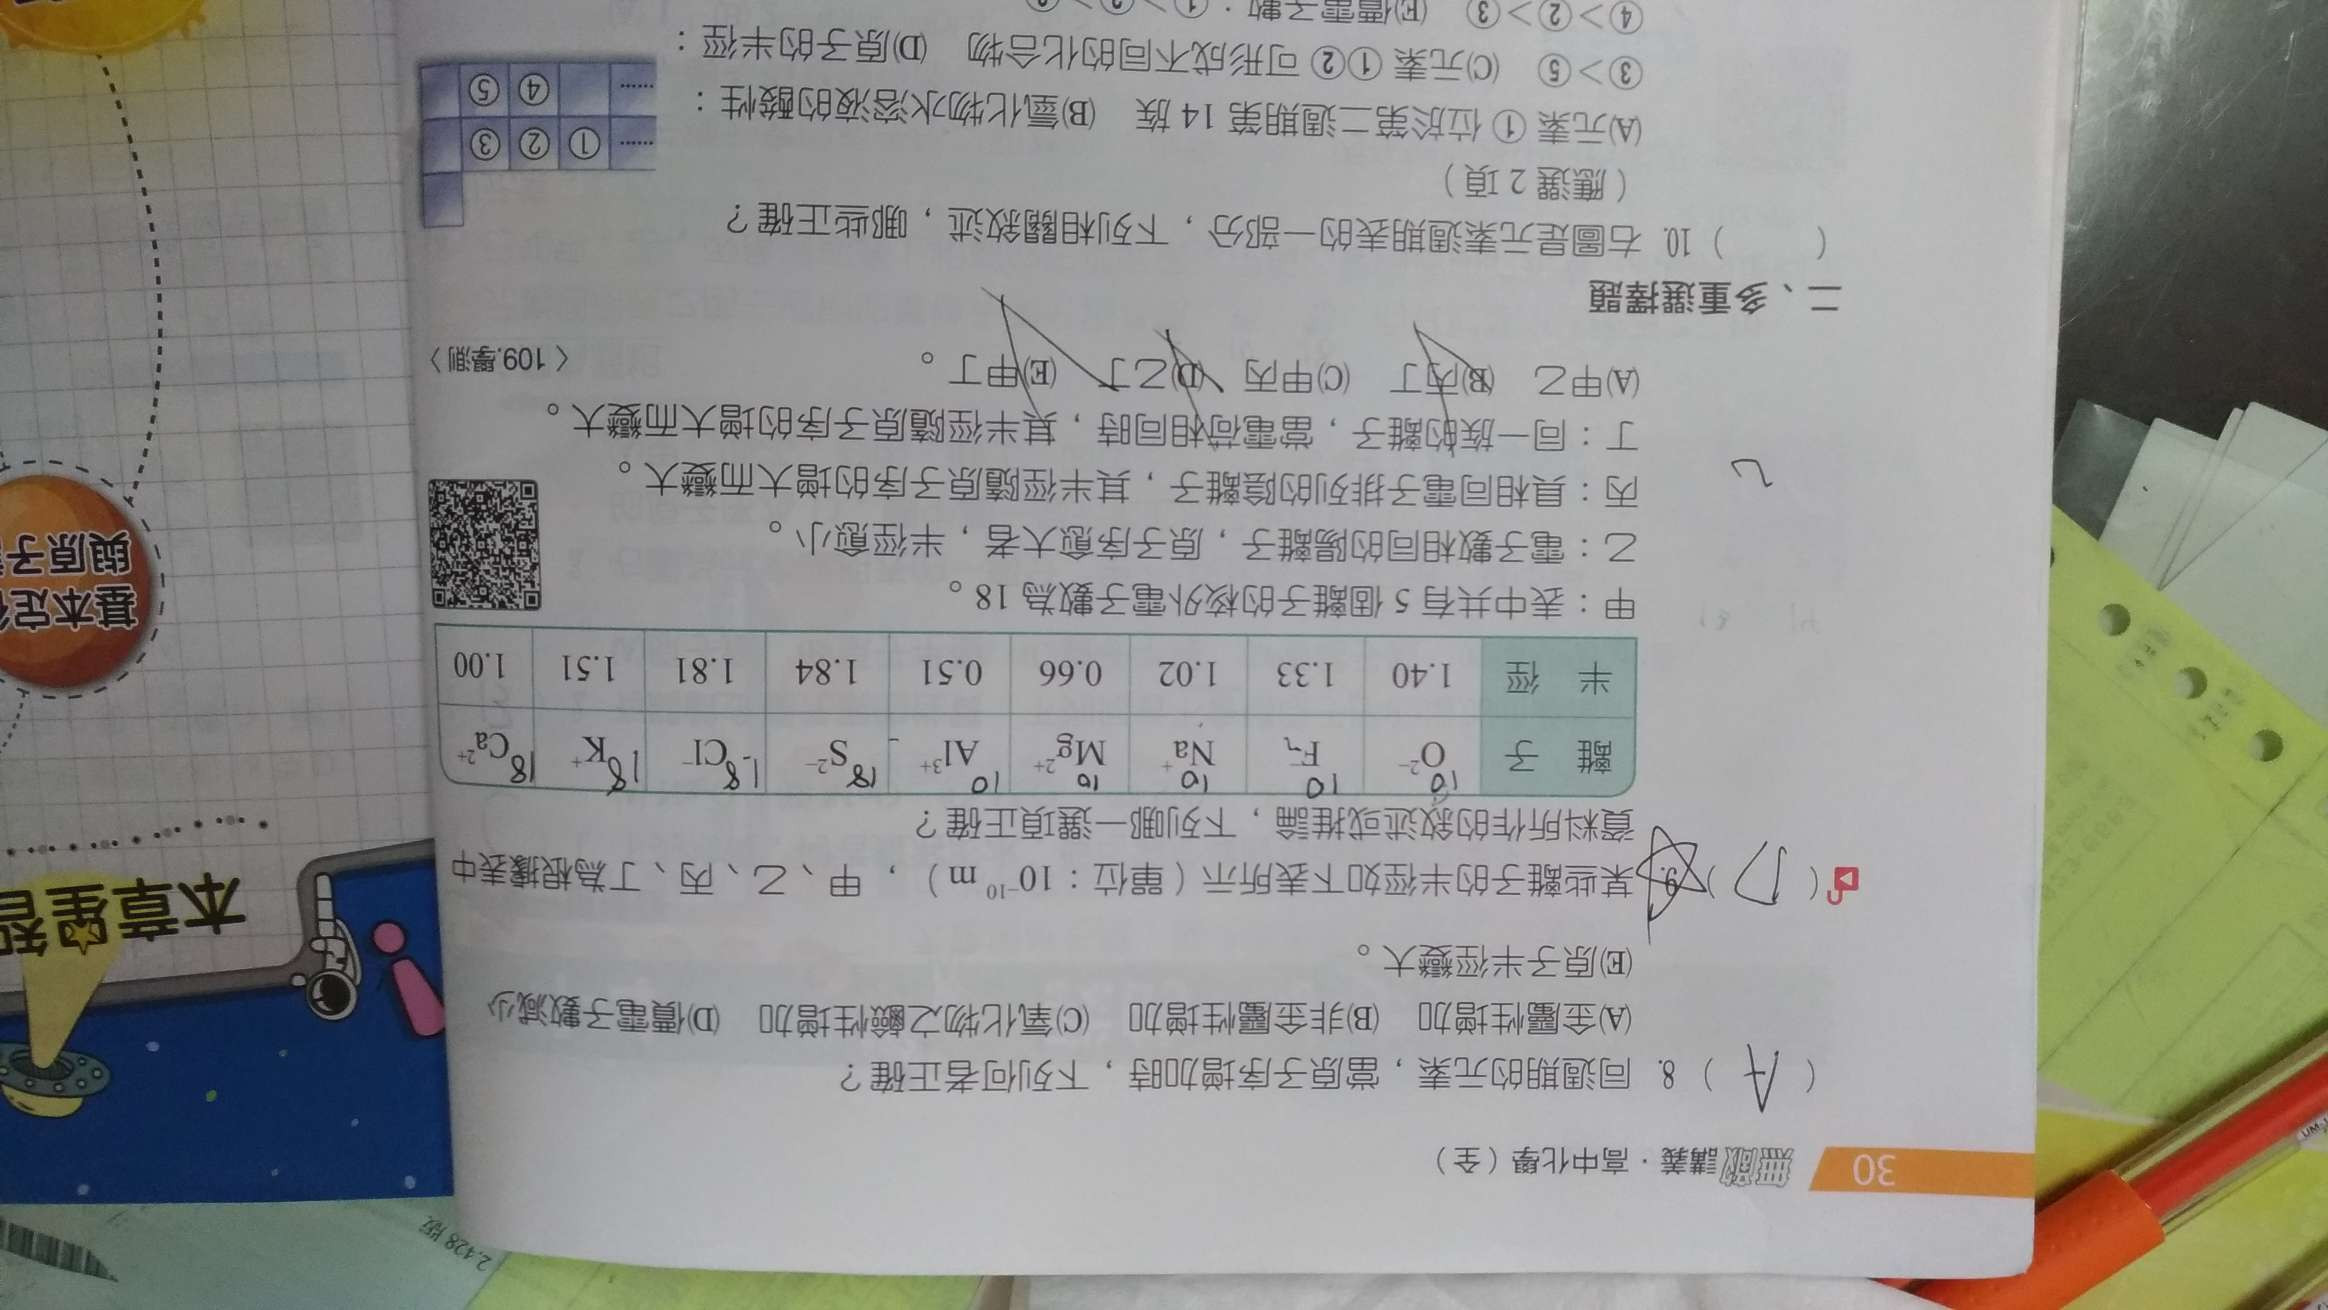 30
無敵講義·高中化學（全）
( A ) 8. 同週期的元素，當原子序增加時，下列何者正確？
(A)金屬性增加 (B)非金屬性增加 (C)氧化物之鹼性增加 (D)價電子數減少
(E)原子半徑變大。
( ) 9. 某些離子的半徑如下表所示（單位：10⁻¹⁰ m），甲、乙、丙、丁為根據表中
資料所作的敘述或推論，下列哪一選項正確？
離子 O²⁻ F⁻ Na⁺ Mg²⁺ Al³⁺ S²⁻ Cl⁻ K⁺ Ca²⁺
10 10 10 10 10 18 18 18 18
半徑 1.40 1.33 1.02 0.66 0.51 1.84 1.81 1.51 1.00
甲：表中共有 5 個離子的核外電子數為 18。
乙：電子數相同的陽離子，原子序愈大者，半徑愈小。
丙：具相同電子排列的陰離子，其半徑隨原子序的增大而變大。
丁：同一族的離子，當電荷相同時，其半徑隨原子序的增大而變大。
(A)甲乙 (B)丙丁 (C)甲丙 (D)乙丁 (E)甲丁。
〈109.學測〉
二、多重選擇題
( ) 10. 右圖是元素週期表的一部分，下列相關敘述，哪些正確？
（應選 2 項）
(A)元素 ① 位於第二週期第 14 族 (B)氫化物水溶液的酸性：
③＞⑤ (C)元素 ①② 可形成不同的化合物 (D)原子的半徑：
④＞②＞③ (E)價電子數：①＞②＞③
…… ① ② ③
…… ④ ⑤
本章星
基本定
與原子
2.428 版